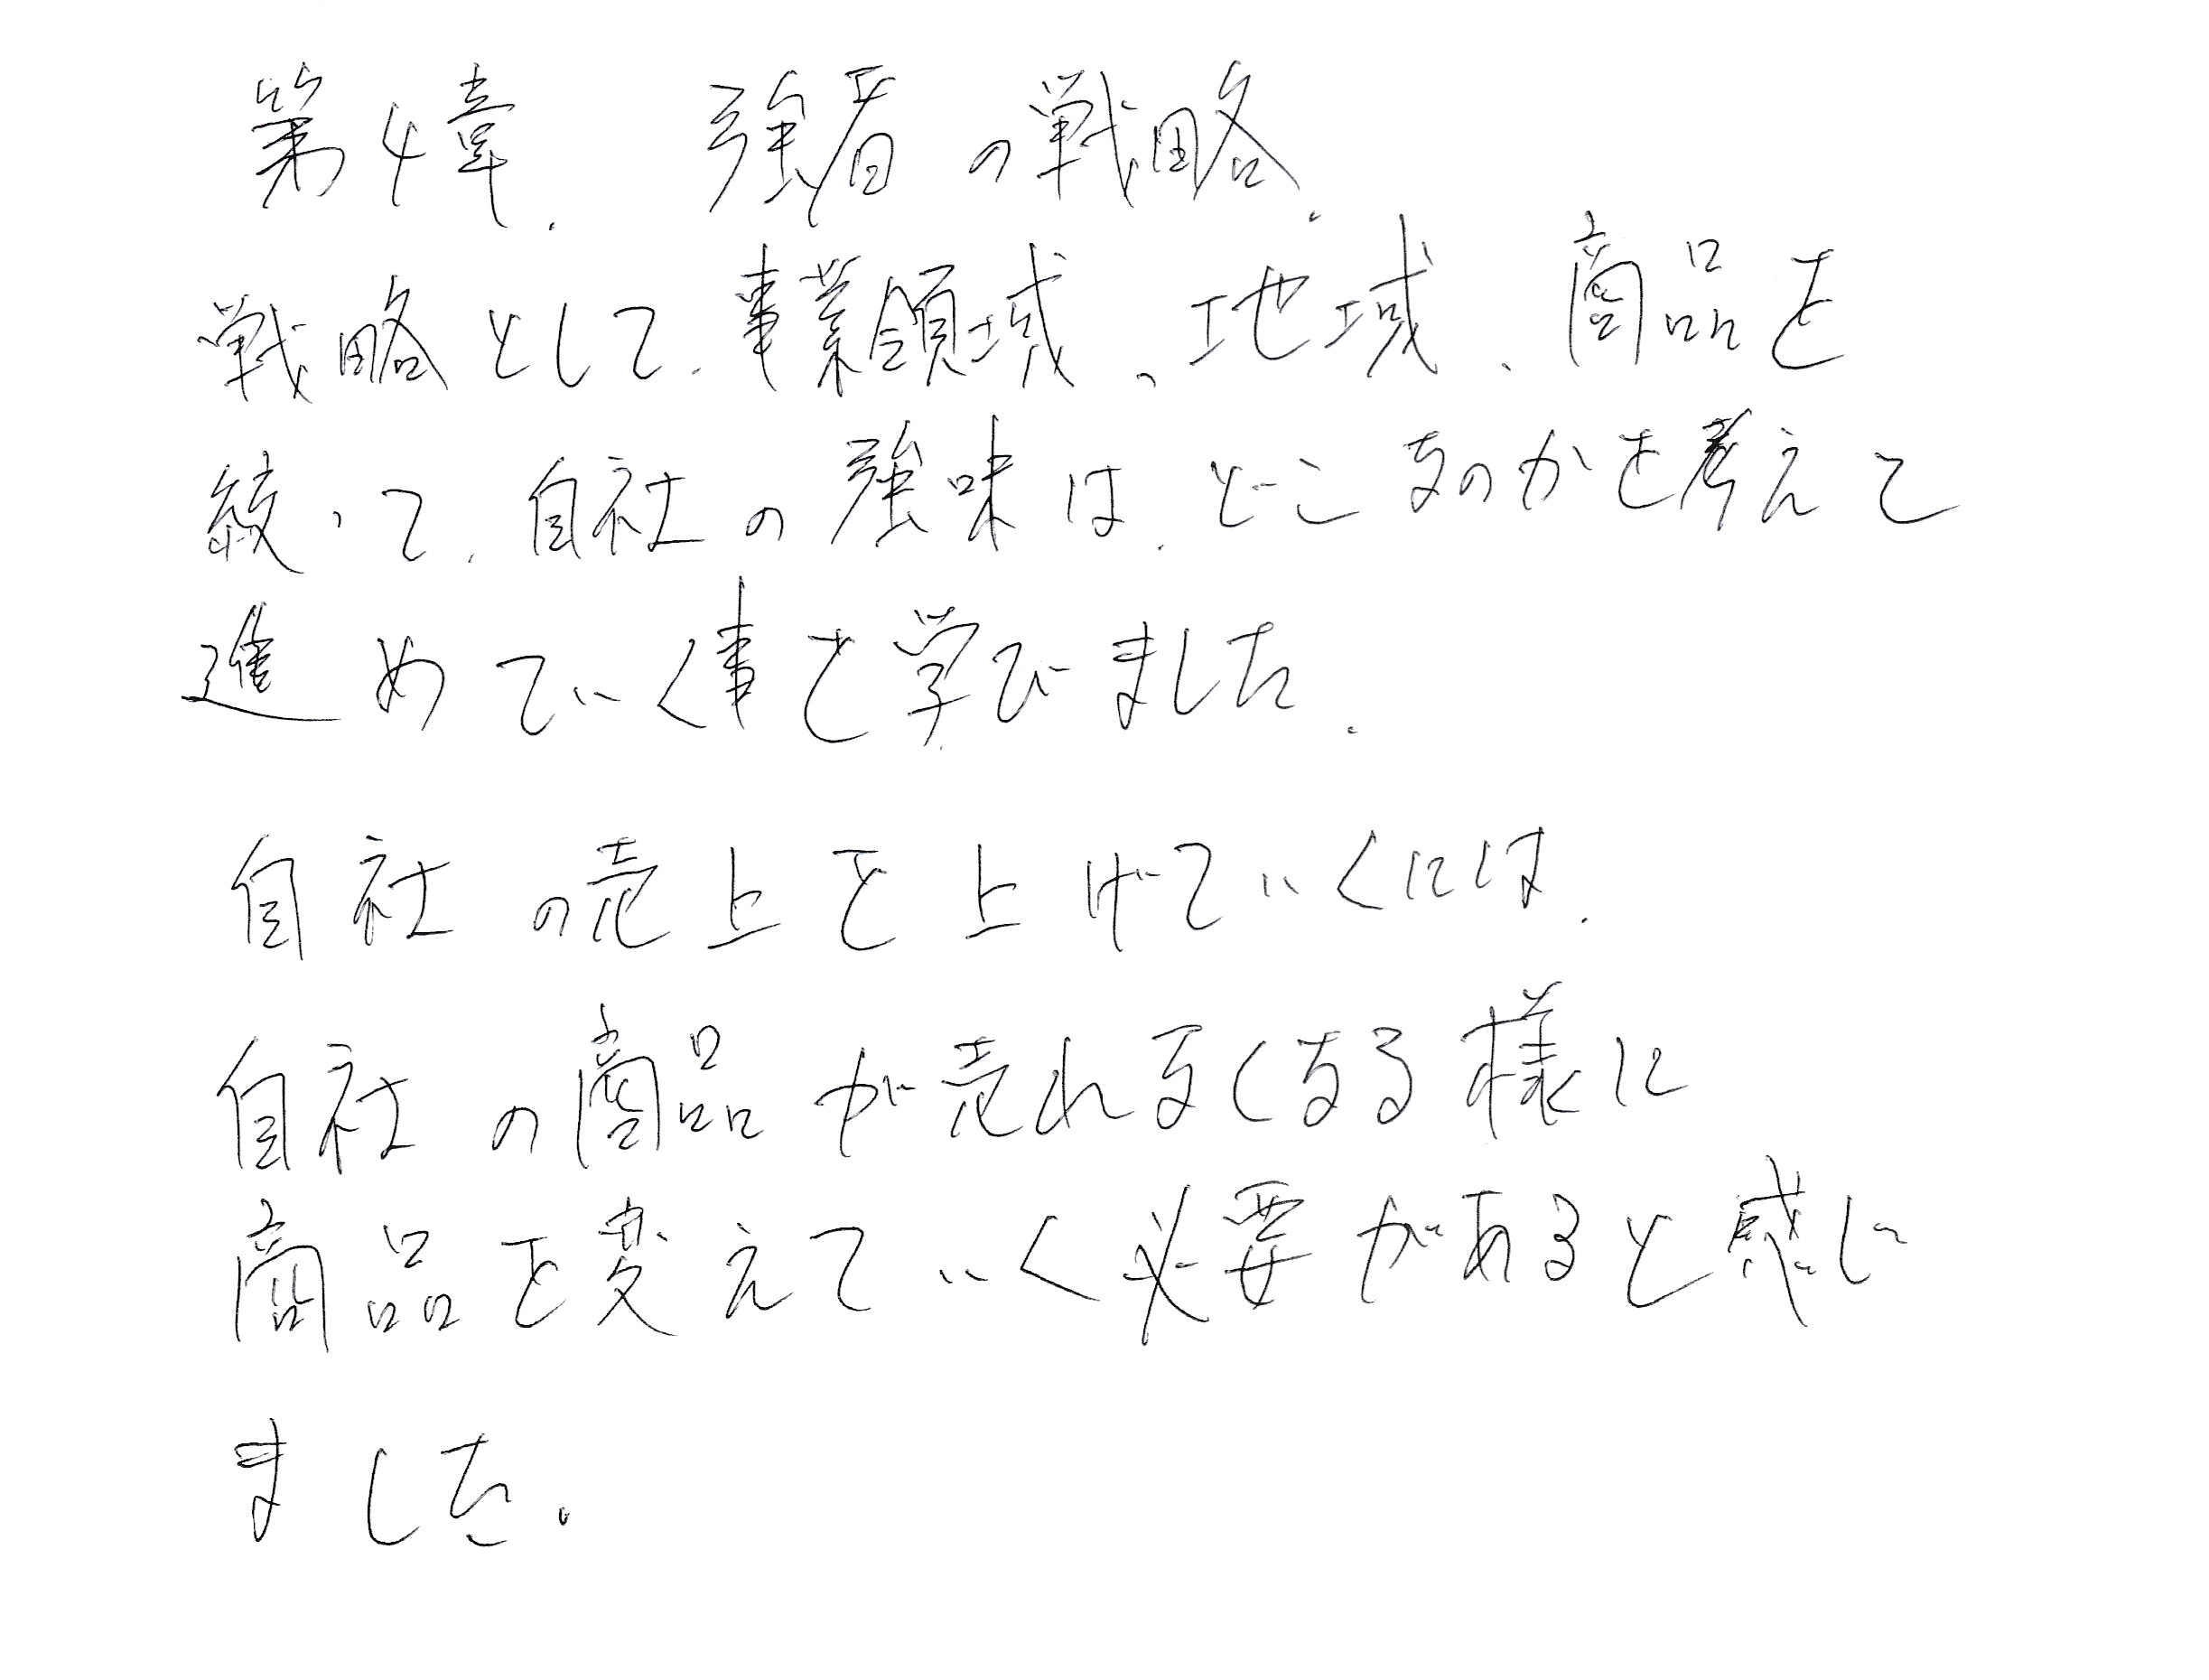 第4章. 強者の戦略.
戦略として、事業領域、地域、商品を
絞って、自社の強味は、どこなのかを考えて
進めていく事を学びました.
自社の売上を上げていくには、
自社の商品が売れなくなる様に
商品を変えていく必要があると感じ
ました.